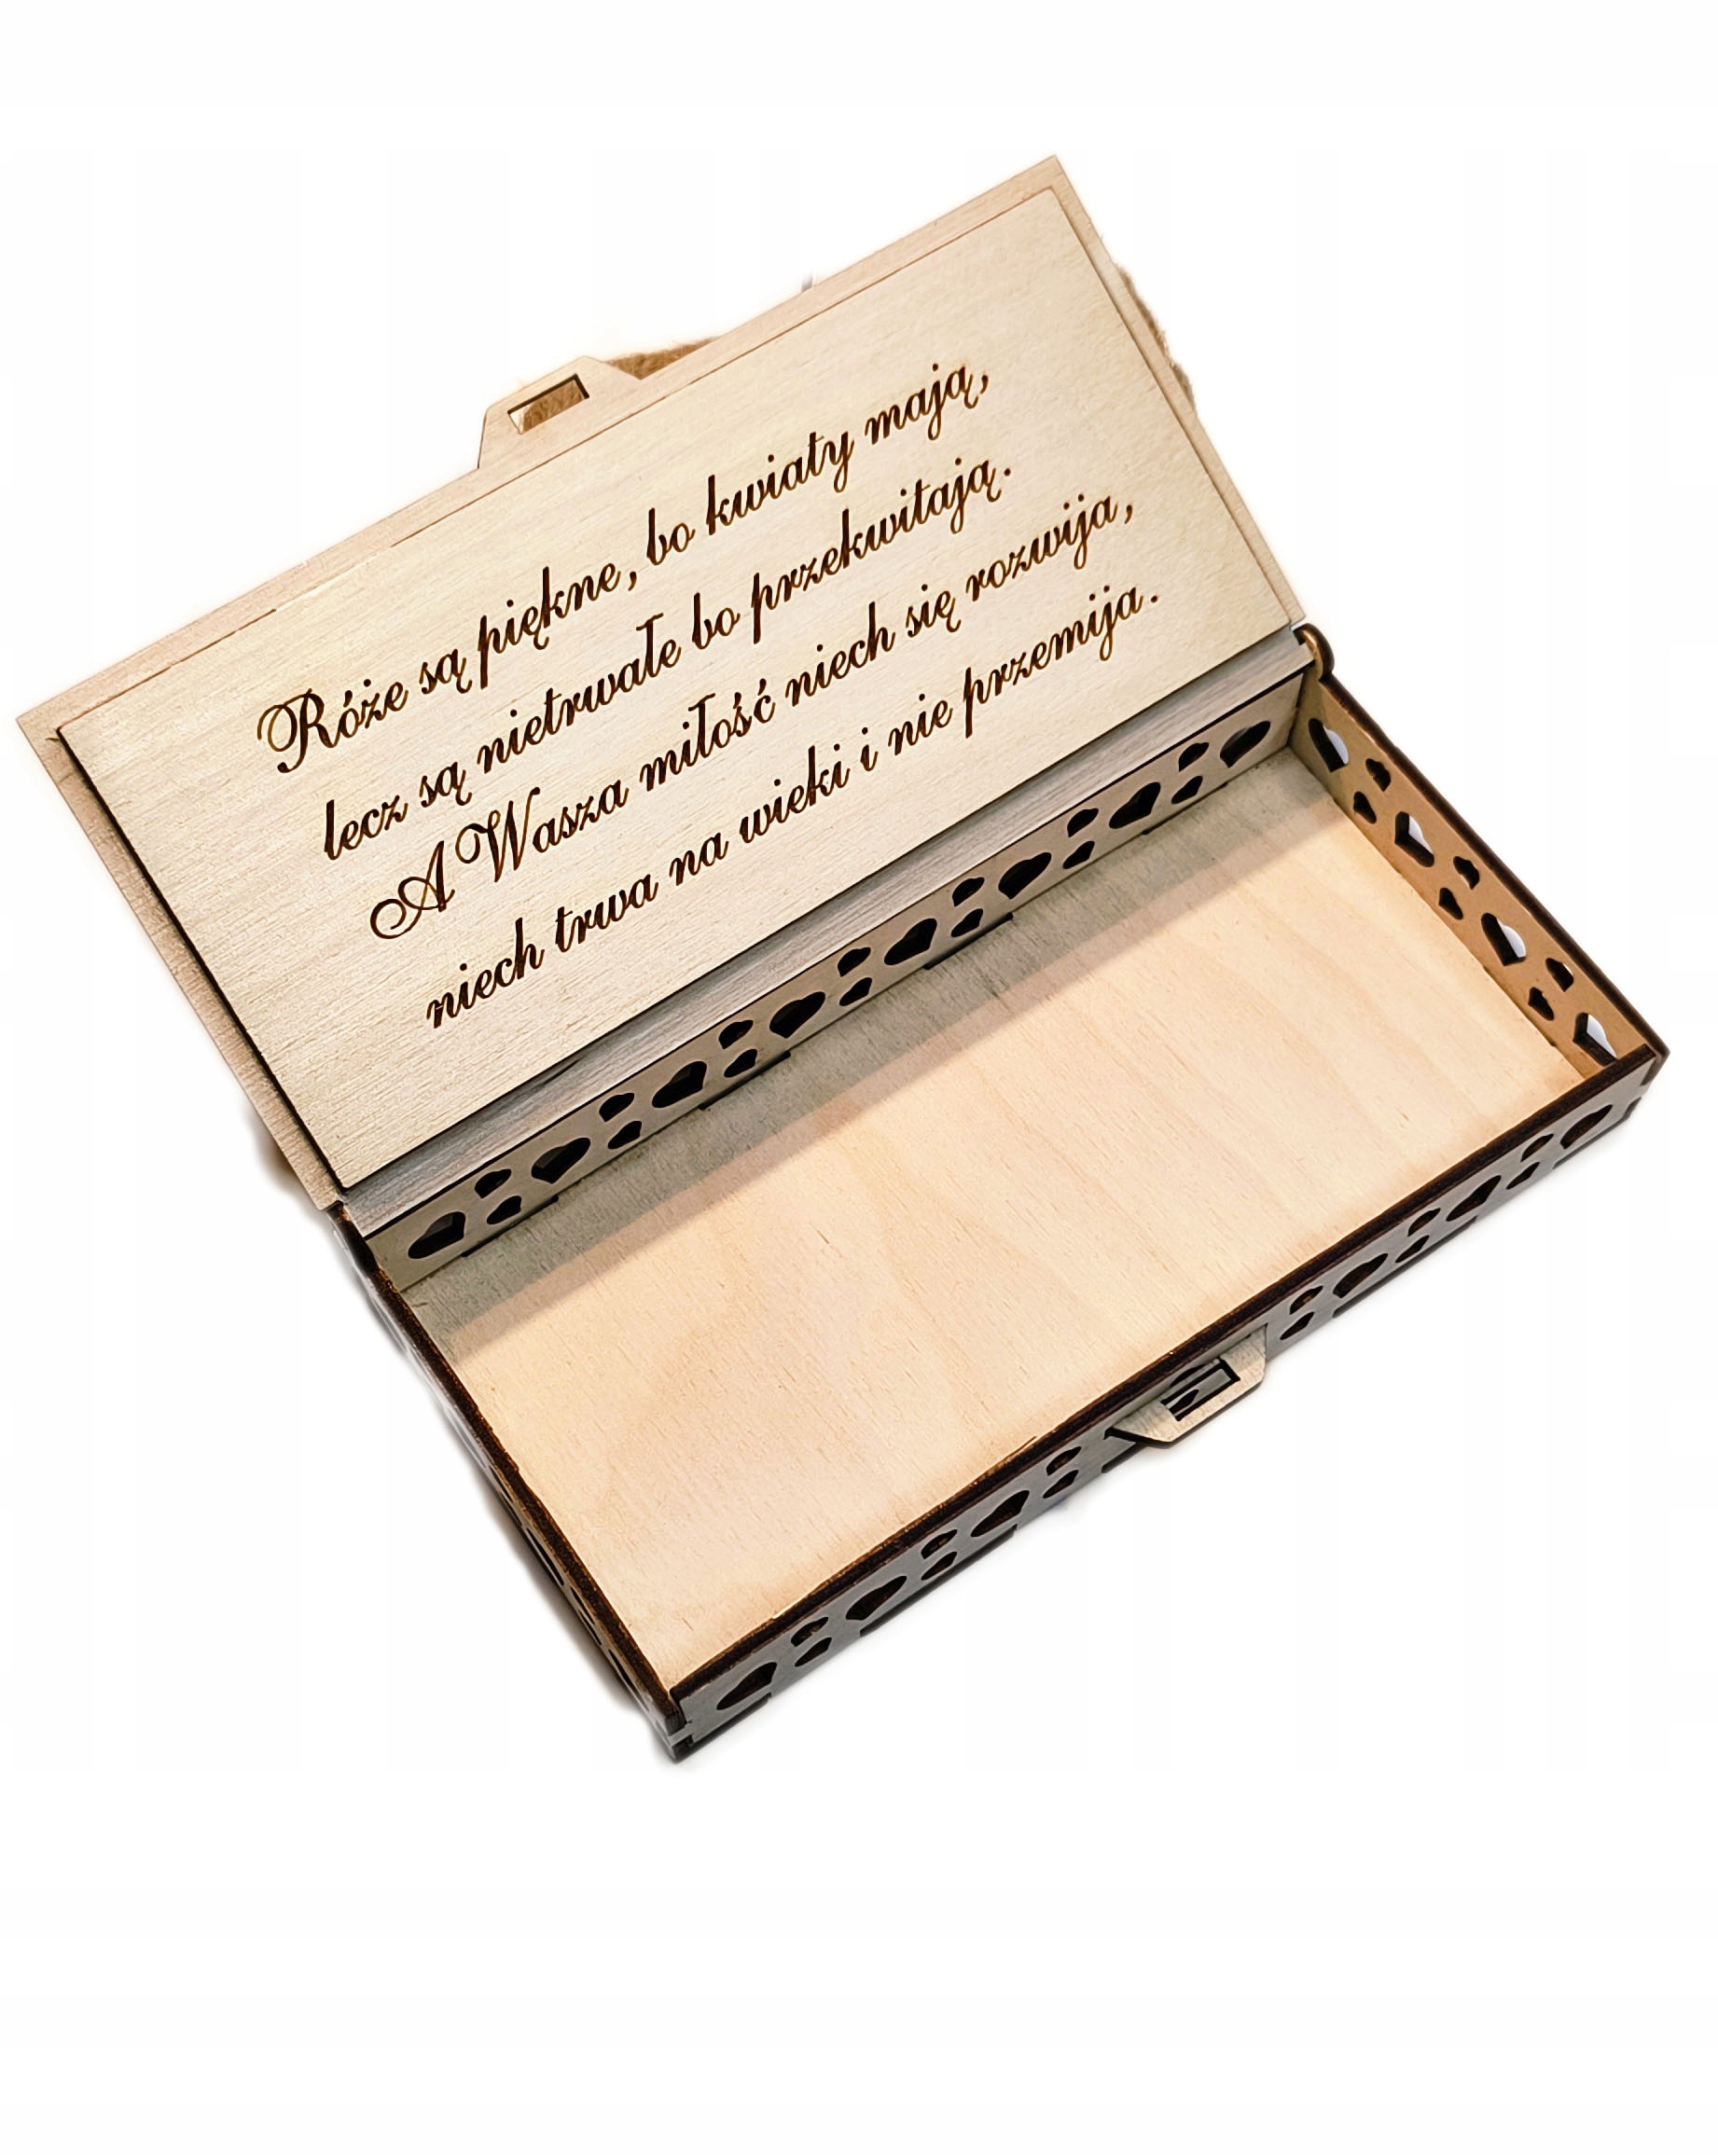 Róże są piękne, bo kwiaty mają,
lecz są nietrwałe bo przekwitają.
A Wasza miłość niech się rozwija,
niech trwa na wieki i nie przemija.